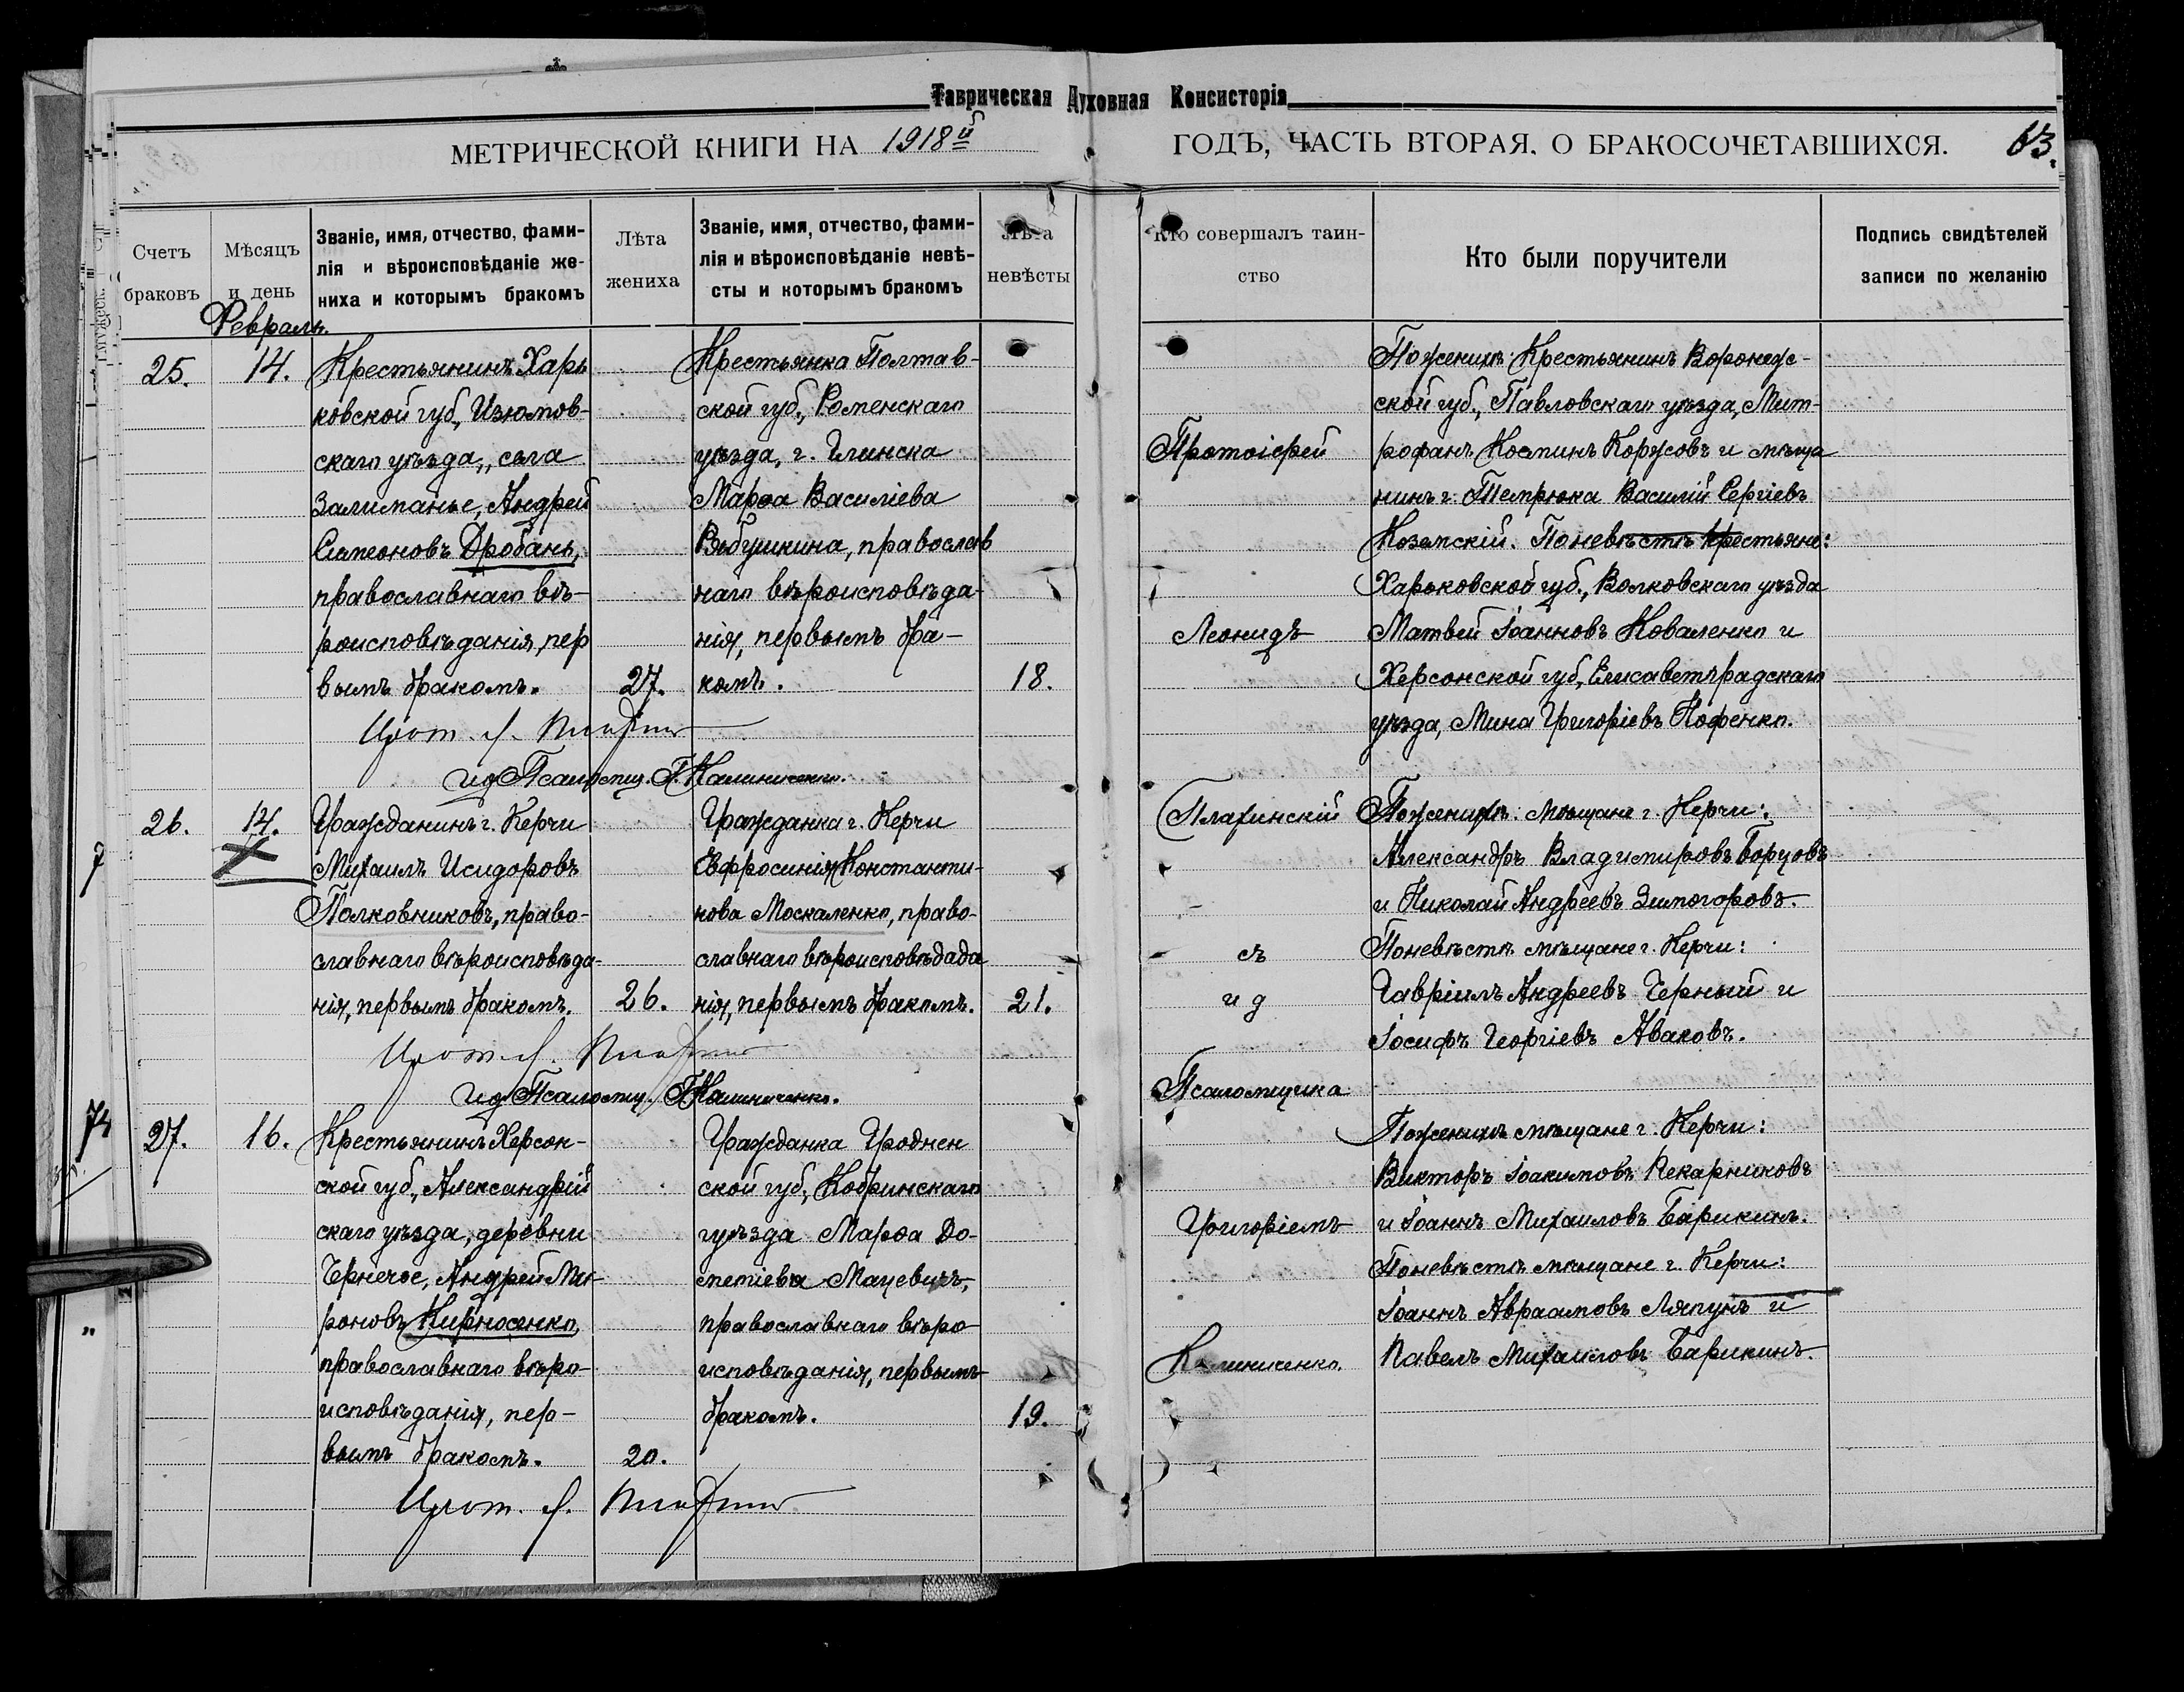 Таврическая Духовная Консисторія
МЕТРИЧЕСКОЙ КНИГИ НА 1918й ГОДЪ, ЧАСТЬ ВТОРАЯ, О БРАКОСОЧЕТАВШИХСЯ. 63.
Счетъ
браковъ
Мѣсяцъ
и день
Званіе, имя, отчество, фами-
лія и вѣроисповѣданіе же-
ниха и которымъ бракомъ
Лѣта
жениха
Званіе, имя, отчество, фами-
лія и вѣроисповѣданіе невѣ-
сты и которымъ бракомъ
Лѣта
невѣсты
Кто совершалъ таин-
ство
Кто были поручители
Подпись свидѣтелей
записи по желанію
Февраль.
25.
14.
Крестьянинъ Харь
ковской губ., Изюмов-
скаго уѣзда, села
Залиманье, Андрей
Симеоновъ Дробань,
православнаго вѣ-
роисповѣданія, пер
вымъ бракомъ.
27.
Крестьянка Полтав-
ской губ., Роменскаго
уѣзда, г. Глинска
Марѳа Василіева
Рябушкина, православ
наго вѣроисповѣда-
нія, первымъ бра-
комъ.
18.
Прот. Л.
ид Псаломщ. Г. Калиниченко.
По женихѣ: Крестьянинъ Воронеж-
ской губ., Павловскаго уѣзда, Мит-
рофанъ Костинъ Коржовъ и мѣща
нинъ г. Темрюка Василій Сергіевъ
Козамскій. По невѣстѣ крестьяне:
Харьковской губ., Волковскаго уѣзда
Матвей Іоанновъ Коваленко и
Херсонской губ., Елисаветградскаго
уѣзда, Мина Григоріевъ Нофенко.
26.
14.
Гражданинъ г. Керчи
Михаилъ Исидоровъ
Полковниковъ, право-
славнаго вѣроисповѣда-
нія, первымъ бракомъ.
26.
Гражданка г. Керчи
Евфросинія Константи-
нова Москаленко, право-
славнаго вѣроисповѣдада
нія, первымъ бракомъ.
21.
Прот. Л.
ид Псаломщ. Г. Калиниченко.
По женихѣ: мѣщане г. Керчи:
Александръ Владимировъ Борцовъ
и Николай Андреевъ Зимогоровъ.
По невѣстѣ мѣщане г. Керчи:
Гавріилъ Андреевъ Черный и
Іосифъ Георгіевъ Аваковъ.
74
27.
16.
Крестьянинъ Херсон-
ской губ., Александрій
скаго уѣзда, деревни
Чернечое, Андрей Ми-
роновъ Кирносенко,
православнаго вѣро-
исповѣданія, пер-
вымъ бракомъ.
20.
Гражданка Гроднен
ской губ., Кобринскаго
уѣзда Марѳа До-
метіева Мацевичъ,
православнаго вѣро
исповѣданія, первымъ
бракомъ.
19.
Прот. Л.
По женихѣ мѣщане г. Керчи:
Викторъ Іоакимовъ Пекарниковъ
и Іоаннъ Михаиловъ Барикинъ.
По невѣстѣ мѣщане г. Керчи:
Іоаннъ Авраамовъ Ляпунъ и
Павелъ Михаиловъ Барикинъ.
Протоіерей
Леонидъ
Плахинскій
съ
и д
Псаломщика
Григоріемъ
Калиниченко.